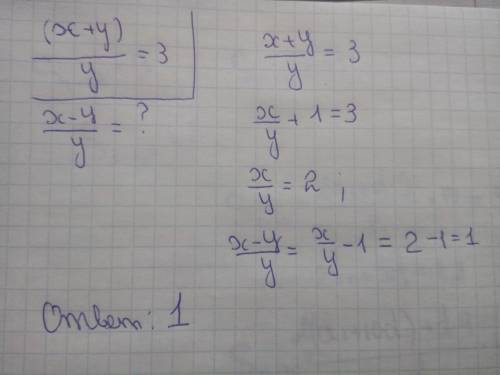 (x+y)/y = 3
(x-y)/y = ?
(x+y)/y = 3
x/y + 1 = 3
x/y = 2 ;
(x-y)/y = x/y - 1 = 2 - 1 = 1
Ответ: 1